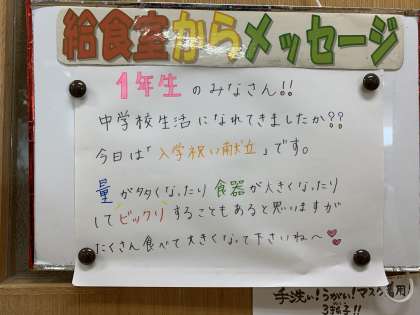 給食室からメッセージ
1年生のみなさん!!
中学校生活になれてきましたか??
今日は「入学祝い献立」です。
量が多くなったり食器が大きくなったり
してビックリすることもあると思いますが
たくさん食べて大きくなって下さいね〜
手洗い!うがい!マスク着用!